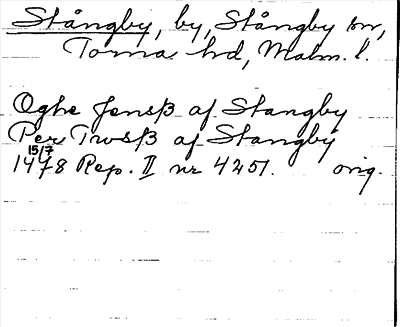 Stångby, by, Stångby sn,
Torna hd, Malm. l.
Oghe Jensß af Stangby
Per Twsß af Stangby
15/7
1478 Rep. II nr 4251. orig.